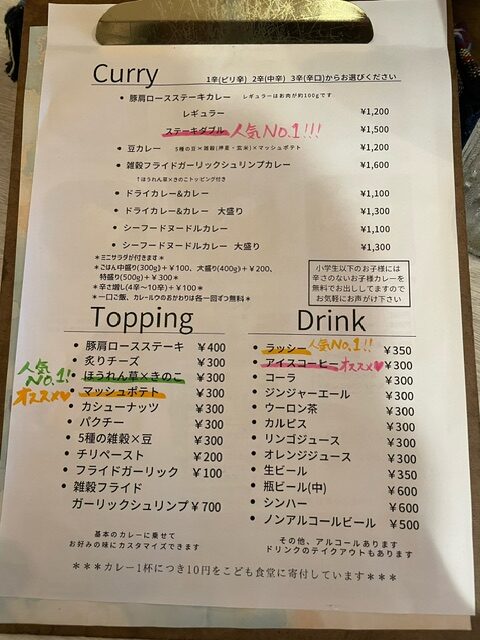 Curry
1辛(ピリ辛) 2辛(中辛) 3辛(辛口)からお選びください
• 豚肩ロースステーキカレー レギュラーはお肉が約100gです
レギュラー ¥1,200
ステーキダブル 人気NO.1!!! ¥1,500
• 豆カレー 5種の豆×雑穀(押麦・玄米)×マッシュポテト ¥1,200
• 雑穀フライドガーリックシュリンプカレー ¥1,600
↑ほうれん草×きのこトッピング付き
• ドライカレー&カレー ¥1,100
• ドライカレー&カレー 大盛り ¥1,300
• シーフードヌードルカレー ¥1,100
• シーフードヌードルカレー 大盛り ¥1,300
*ミニサラダが付きます*
*ごはん中盛り(300g)+¥100、大盛り(400g)+¥200、
特盛り(500g)+¥300*
*辛さ増し(4辛~10辛)+¥100*
*一口ご飯、カレールウのおかわりは各一回ずつ無料*
小学生以下のお子様には
辛さのないお子様カレーを
無料でお出ししてますので
お気軽にお声がけ下さい
Topping
• 豚肩ロースステーキ ¥400
• 炙りチーズ ¥300
人気NO.1!
• ほうれん草×きのこ ¥300
オススメ
• マッシュポテト ¥300
• カシューナッツ ¥300
• パクチー ¥300
• 5種の雑穀×豆 ¥300
• チリペースト ¥200
• フライドガーリック ¥100
• 雑穀フライド
ガーリックシュリンプ ¥700
基本のカレーに乗せて
お好みの味にカスタマイズできます
Drink
• ラッシー 人気NO.1!! ¥350
• アイスコーヒー オススメ♥ ¥300
• コーラ ¥300
• ジンジャーエール ¥300
• ウーロン茶 ¥300
• カルピス ¥300
• リンゴジュース ¥300
• オレンジジュース ¥300
• 生ビール ¥350
• 瓶ビール(中) ¥600
• シンハー ¥600
• ノンアルコールビール ¥500
その他、アルコールあります
ドリンクのテイクアウトもあります
***カレー1杯につき10円をこども食堂に寄付しています***